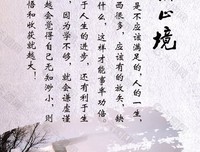 止境
是不应该满足的，人的一生，
西很多，应该有的放矢，缺
什么，这样才能事半功倍
于人生的进步，还有利于生
，因为学不够，就会谦虚谨
越会觉得自己无知渺小，则
悟和收获就越大！